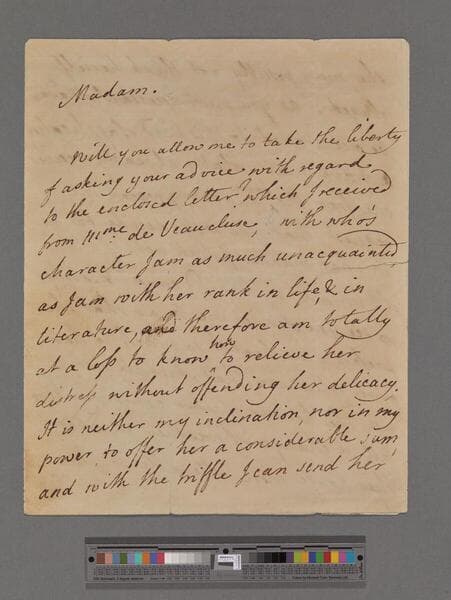 Madam.
Will you allow me to take the liberty
of asking your advice with regard
to the enclosed letter? which I received
from Mme. de Veaucluse, with who's
character I am as much unacquainted,
as I am with her rank in life, & in
literature, and therefore am totally
at a loss to know how to relieve her
distress without offending her delicacy.
It is neither my inclination, nor in my
power, to offer her a considerable sum,
and with the triffle I can send her